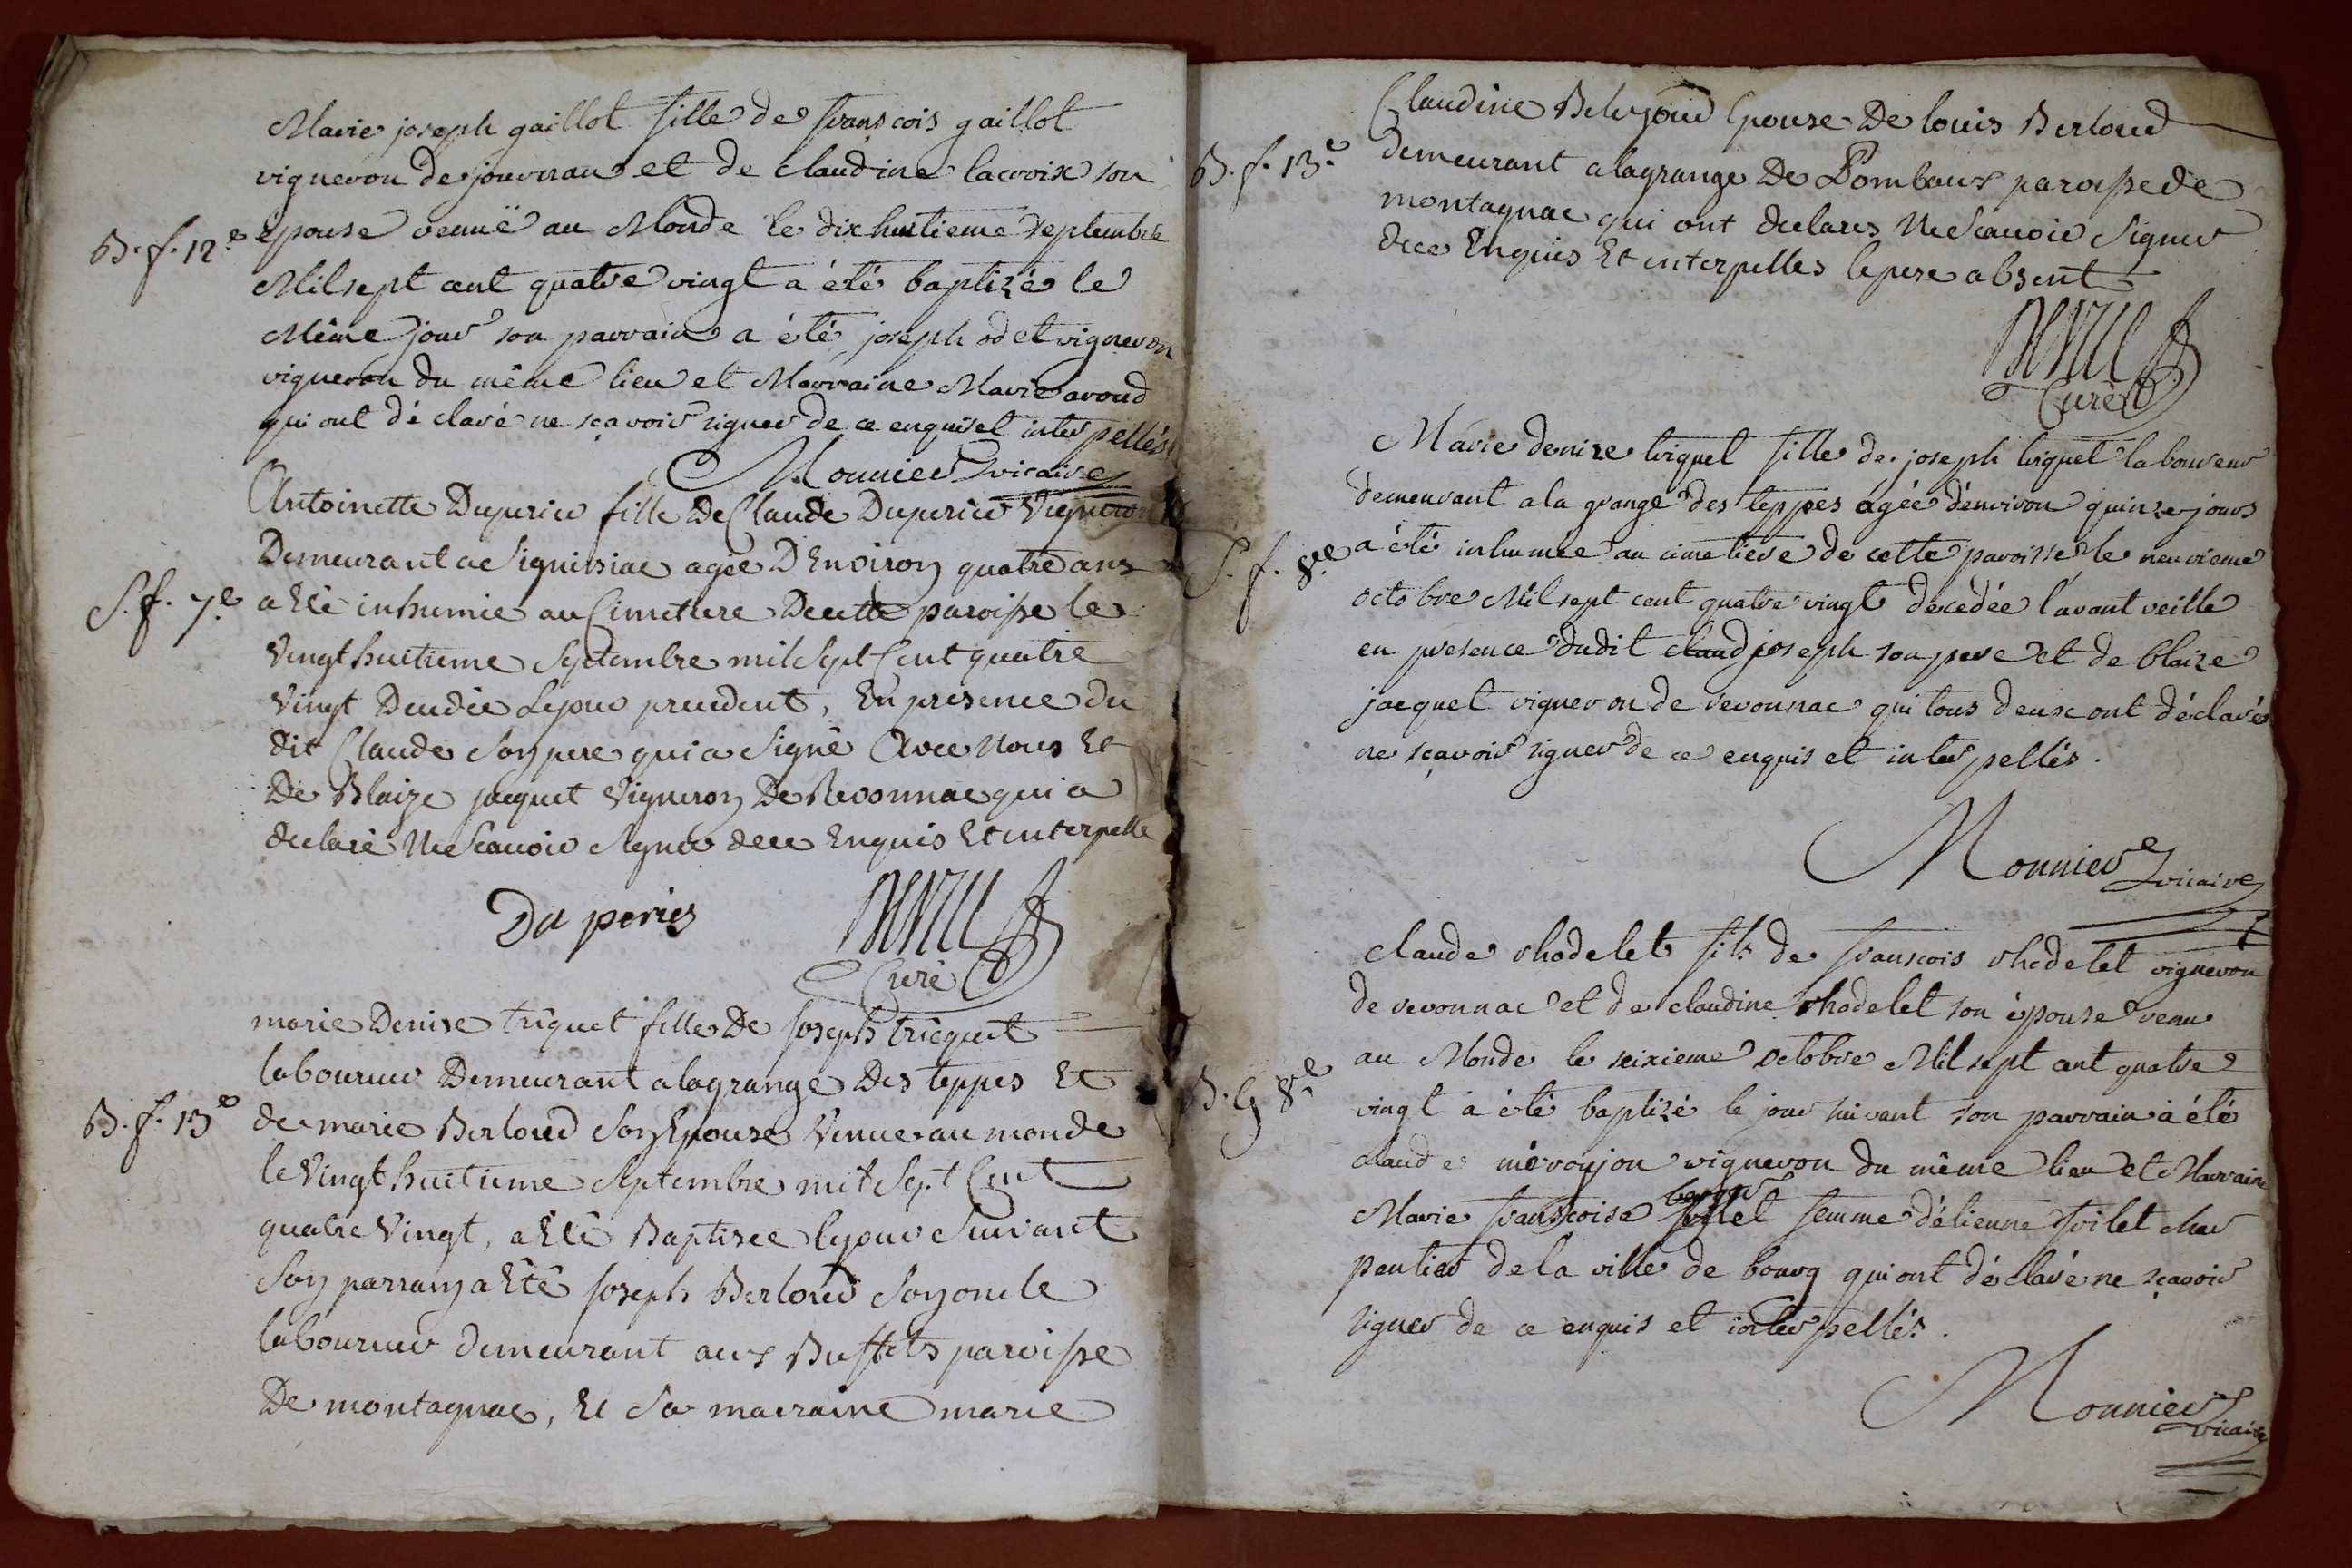 Marie joseph gaillot fille de françois gaillot
vigneron de journan et de claudine lacroix son
B. f. 12.e épouse venuë au Monde le dix huitieme septembre
Mil sept cent quatre vingt a été baptizée le
Même jour son parrain a été joseph odet vigneron
vigneron du même lieu et Marraine Marie avoud
qui ont déclaré ne sçavoir signer de ce enquis et interpellés
Monnier vicaire
Antoinette Duperier fille De Claude Duperier Vigneron
Demeurant a Signissiac agée D'Environ quatre ans
S. f. 7.e a Eté inhumée au Cimetiere De cette paroisse le
Vingt huitieme Septembre mil Sept Cent quatre
Vingt Decedée Le jour precedent, En presence du
dit Claude Son pere qui a Signé Avec Nous Et
De Blaize jacquet Vigneron De Revonnac qui a
declaré Ne Scavoir Signer de ce Enquis Et interpelle
Du perier
Curé
marie Denise triquet fille De joseph triquet
laboureur Demeurant a la grange Des teppes Et
B. f. 13.e de marie Berloud Son Epouse Venue au monde
le Vingt huitieme Septembre mil Sept Cent
quatre Vingt, a Eté Baptisee le jour Suivant
Son parrain a Eté joseph Berloud Son oncle
laboureur demeurant aux Buffets paroisse
De montagnac, Et Sa marraine marie
Claudine Epouse De louis Berloud
B. f. 13.e Demeurant a la grange De Pombaux paroisse de
montagnac qui ont declarés Ne Scavoir Signer
de ce Enquis Et interpelles le pere absent
Curé
Marie denize triquet fille de joseph triquet laboureur
demeurant a la grange des teppes agée d'environ quinze jours
S. f. 8.e a été inhumée au cimetiere de cette paroisse le neuvieme
octobre Mil sept cent quatre vingt decedée l'avant veille
en presence dudit claud joseph son pere et de blaize
jacquet vigneron de revonnac qui tous deux ont déclarés
ne sçavoir signer de ce enquis et interpellés.
Monnier vicaire
claude rhodelet fils de françois rhodelet vigneron
de revonnac et de claudine rhodelet son épouse venu
B. G. 8.e au Monde le seizieme octobre Mil sept cent quatre
vingt a été baptizé le jour suivant son parrain a été
claude meroujon vigneron du même lieu et Marraine
Marie françoise femme d'étienne foilet char
pentier de la ville de bourg qui ont déclaré ne sçavoir
signer de ce enquis et interpellés.
Monnier vicaire